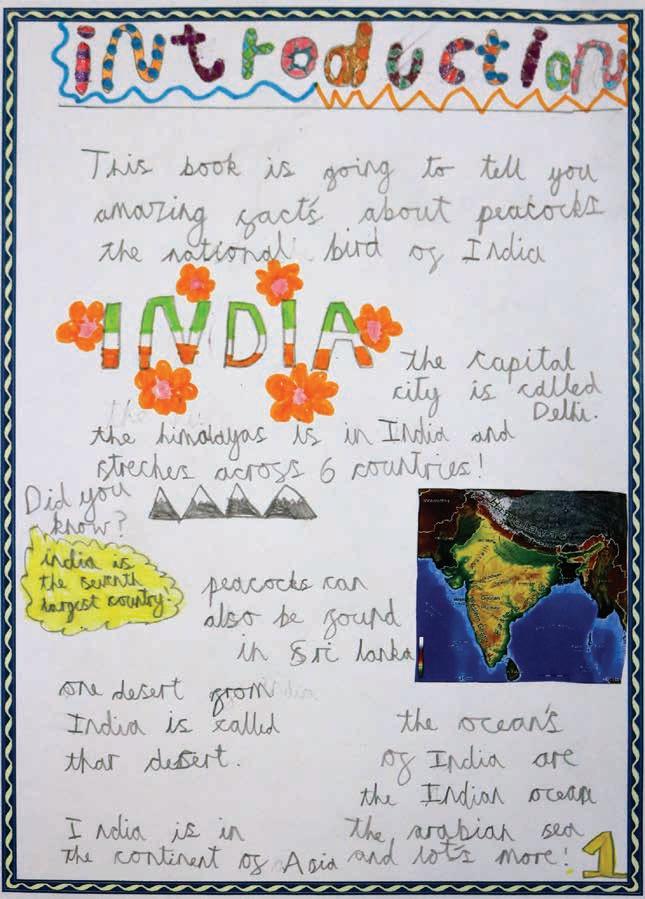 introduction
This book is going to tell you
amazing fact's about peacocks
the national bird of India
INDIA
the capital
city is called
Delhi.
the himalayas is in India and
streches across 6 countries!
Did you
know?
india is
the seventh
largest country.
peacocks can
also be found
in Sri lanka
one desert from
India is called
thar desert.
the ocean's
of India are
the Indian ocean
the arabian sea
and lot's more!
India is in
the continent of Asia
1